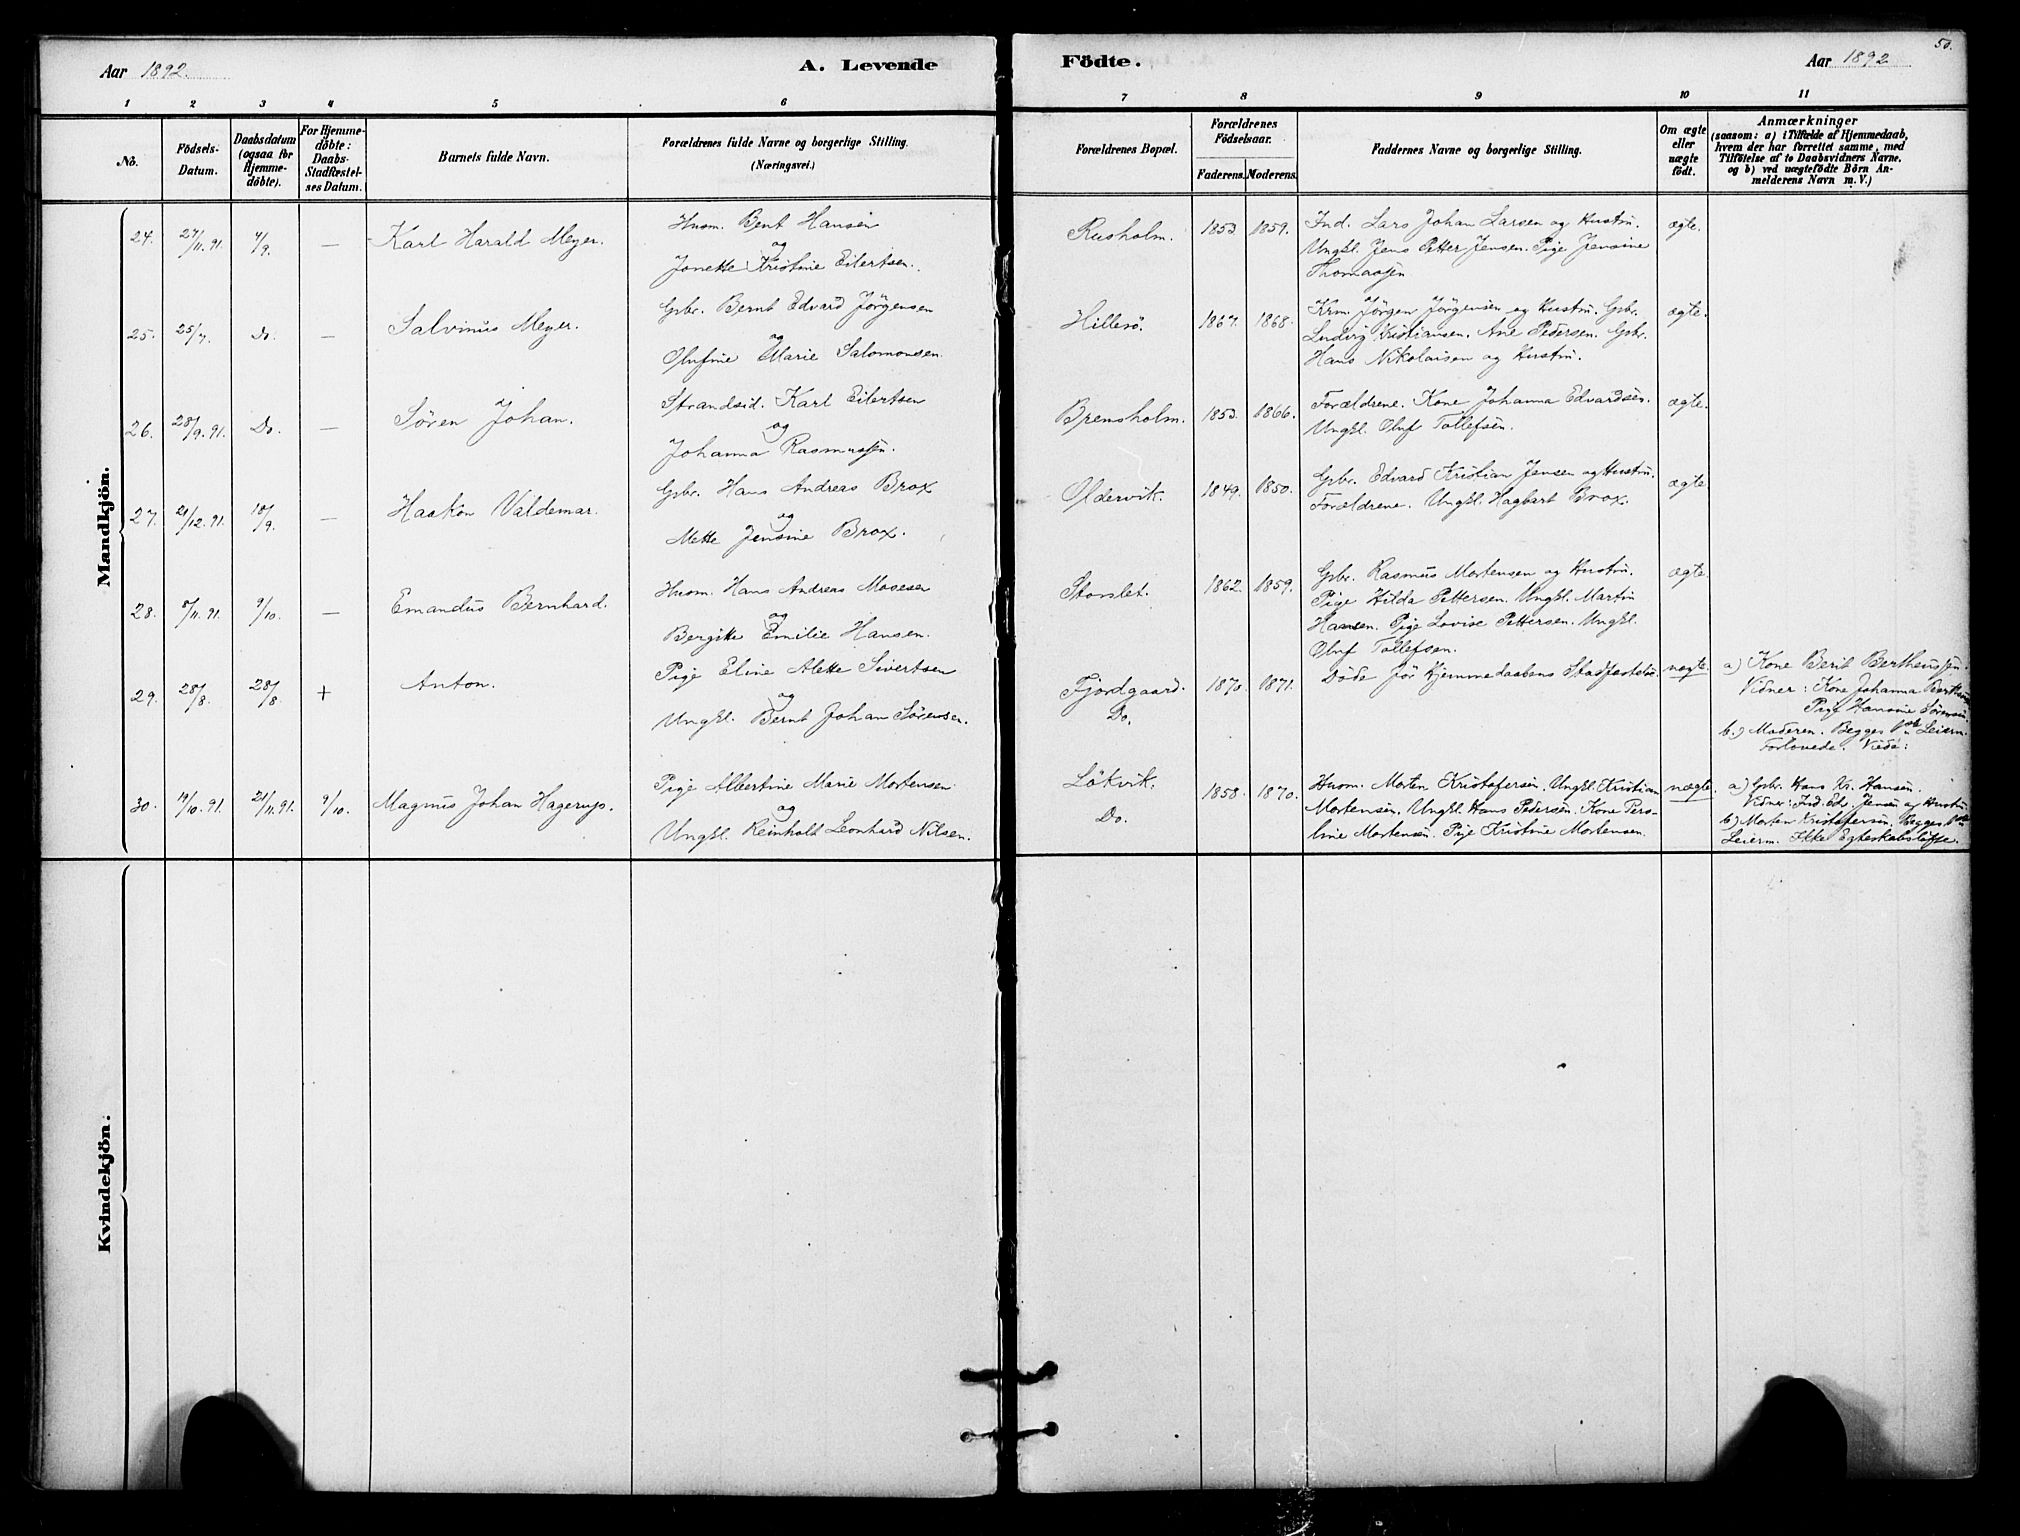 Aar 1892.
A. Levende
Födte.
Aar 1892
50.
1 2 3 4 5 6 7 8 9 10 11
No.
Födsels-
Datum.
Daabsdatum
(ogsaa for
Hjemme-
döbte).
For Hjemme-
döbte:
Daabs-
Stadfæstel-
ses Datum.
Barnets fulde Navn.
Forældrenes fulde Navne og borgerlige Stilling.
(Næringsvei.)
Forældrenes Bopæl.
Forældrenes
Födselsaar.
Faderens. Moderens.
Faddernes Navne og borgerlige Stilling.
Om ægte
eller
uægte
födt.
Anmærkninger
(saasom: a) i Tilfælde af Hjemmedaab,
hvem der har forrettet samme, med
Tilföielse af to Daabsvidners Navne.
og b) ved uægtefödte Börn An-
melderens Navn m. V.)
Mandkjön.
24. 27/11.91. 4/9. — Karl Harald Meyer.
Husm. Bent Hansen
og
Jonette Kristine Eilertsen.
Rusholm. 1853. 1859.
Ind. Lars Johan Larsen og Hustru.
Ungkl. Jens Petter Jensen. Pige Jensine
Thomassen
ægte.
25. 25/7. Do. — Salvinus Meyer.
Gbr. Bernt Edvard Jörgensen
og
Olufine Marie Salomonsen.
Hillesö. 1867. 1868.
Krm. Jörgen Jörgensen og Hustru. Gbr.
Ludvig Kristiansen. Ane Pedersen. Gbr.
Hans Nikolaisen og Hustru.
ægte.
26. 28/9.91. Do. — Sören Johan.
Strandsid. Karl Eilertsen
og
Johanna Rasmussen.
Bremsholm. 1853. 1866.
Forældrene. Kone Johanna Edvardsen.
Ungkl. Oluf Tollefsen.
ægte.
27. 29/12.91. 18/9. — Haakon Valdemar.
Gbr. Hans Andreas Brox
og
Mette Jensine Brox.
Oldervik. 1849. 1850.
Gbr. Edvard Kristian Jensen og Hustru.
Forældrene. Ungkl. Hagbart Brox.
ægte
28. 8/11.91. 9/10. — Emandus Bernhard.
Husm. Hans Andreas Mosesen
og
Bergitte Emilie Hansen.
Storslet. 1862. 1859.
Gbr. Rasmus Mortensen og Hustru.
Pige Hilda Pettersen. Ungkl. Martin
Hansen. Pige Lovise Pettersen. Ungkl.
Oluf Tollefsen.
ægte.
29. 28/8. 28/8. + Anton.
Pige Eline Alette Sivertsen
og
Ungkl. Bernt Johan Sörensen.
Fjordgaard.
Do.
1870. 1871.
Döde för Hjemmedaabens Stadfæstelse.
uægte.
a) Kone Berit Bertheussen.
Vidner: Kone Johanna
Pige Hansine Sörensen.
b.) Moderen. Begges 1ste Leierm.
Forlovede.
30. 19/10.91. 21/11.91. 9/10. Magnus Johan Hagerup.
Pige Albertine Marie Mortensen
og
Ungkl. Reinholt Leonhard Nilsen.
Lökvik.
Do.
1858. 1870.
Husm. Morten Kristofersen. Ungkl. Kristian
Mortensen. Ungkl. Hans Pedersen. Kone Pero-
line Mortensen. Pige Kristine Mortensen.
uægte.
a) Gbr. Hans Kr. Hansen.
Vidner: Ind. Edv. Jensen og Hustru
b) Morten Kristofersen. Begges 1ste
Leierm. Ikke Egteskabslöfte.
Kvindekjön.